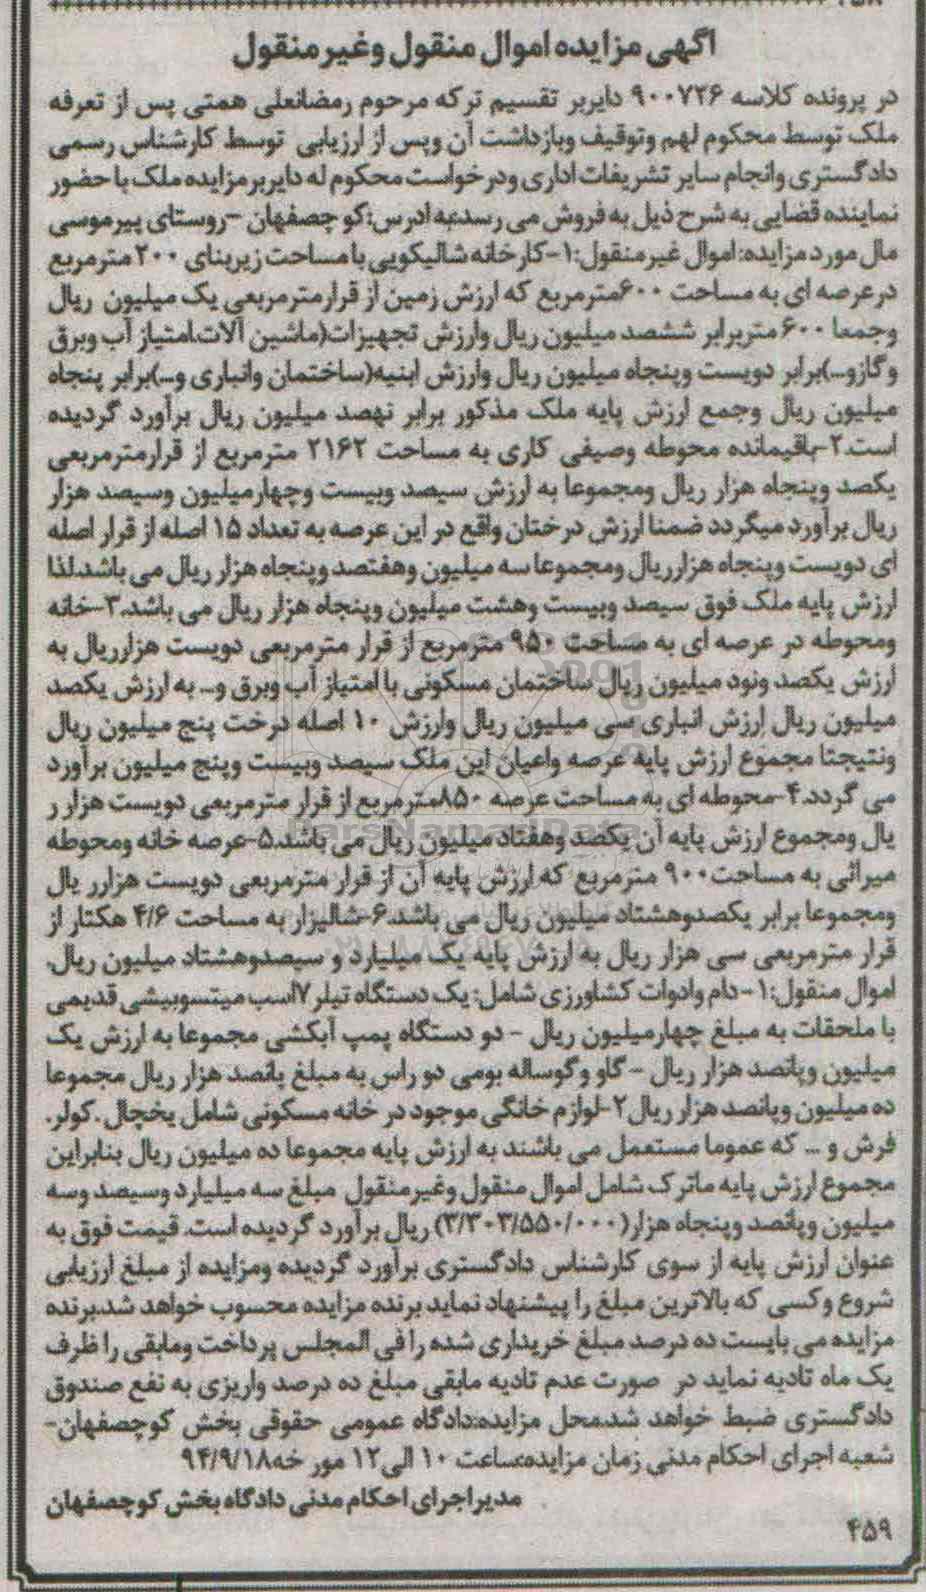 آگهی مزایده اموال منقول وغیرمنقول
در پرونده کلاسه ۹۰۰۷۲۶ دایربر تقسیم ترکه مرحوم رمضانعلی همتی پس از تعرفه
ملک توسط محکوم لهم وتوقیف وبازداشت آن وپس از ارزیابی توسط کارشناس رسمی
دادگستری وانجام سایر تشریفات اداری ودرخواست محکوم له دایربرمزایده ملک با حضور
نماینده قضایی به شرح ذیل به فروش می رسد:به ادرس:کوچصفهان -روستای پیرموسی
مال مورد مزایده: اموال غیرمنقول:۱-کارخانه شالیکوبی با مساحت زیربنای ۲۰۰ مترمربع
درعرصه ای به مساحت ۶۰۰مترمربع که ارزش زمین از قرارمترمربعی یک میلیون ریال
وجمعا ۶۰۰ متربرابر ششصد میلیون ریال وارزش تجهیزات(ماشین آلات.امتیاز آب وبرق
وگازو...)برابر دویست وپنجاه میلیون ریال وارزش ابنیه(ساختمان وانباری و...)برابر پنجاه
میلیون ریال وجمع ارزش پایه ملک مذکور برابر نهصد میلیون ریال برآورد گردیده
است.۲-باقیمانده محوطه وصیفی کاری به مساحت ۲۱۶۲ مترمربع از قرارمترمربعی
یکصد وپنجاه هزار ریال ومجموعا به ارزش سیصد وبیست وچهارمیلیون وسیصد هزار
ریال برآورد میگردد ضمنا ارزش درختان واقع در این عرصه به تعداد ۱۵ اصله از قرار اصله
ای دویست وپنجاه هزارریال ومجموعا سه میلیون وهفتصد وپنجاه هزار ریال می باشد.لذا
ارزش پایه ملک فوق سیصد وبیست وهشت میلیون وپنجاه هزار ریال می باشد.۳-خانه
ومحوطه در عرصه ای به مساحت ۹۵۰ مترمربع از قرار مترمربعی دویست هزارریال به
ارزش یکصد ونود میلیون ریال ساختمان مسکونی با امتیاز آب وبرق و... به ارزش یکصد
میلیون ریال ارزش انباری سی میلیون ریال وارزش ۱۰ اصله درخت پنج میلیون ریال
ونتیجتا مجموع ارزش پایه عرصه واعیان این ملک سیصد وبیست وپنج میلیون برآورد
می گردد.۴-محوطه ای به مساحت عرصه ۸۵۰مترمربع از قرار مترمربعی دویست هزار ر
یال ومجموع ارزش پایه آن یکصد وهفتاد میلیون ریال می باشد.۵-عرصه خانه ومحوطه
میراثی به مساحت ۹۰۰ مترمربع که ارزش پایه آن از قرار مترمربعی دویست هزارر یال
ومجموعا برابر یکصدوهشتاد میلیون ریال می باشد.۶-شالیزار به مساحت ۴/۶ هکتار از
قرار مترمربعی سی هزار ریال به ارزش پایه یک میلیارد و سیصدوهشتاد میلیون ریال.
اموال منقول:۱-دام وادوات کشاورزی شامل: یک دستگاه تیلر ۷اسب میتسوبیشی قدیمی
با ملحقات به مبلغ چهارمیلیون ریال - دو دستگاه پمپ آبکشی مجموعا به ارزش یک
میلیون وپانصد هزار ریال - گاو وگوساله بومی دو راس به مبلغ پانصد هزار ریال مجموعا
ده میلیون وپانصد هزار ریال۲-لوازم خانگی موجود در خانه مسکونی شامل یخچال .کولر.
فرش و ... که عموما مستعمل می باشند به ارزش پایه مجموعا ده میلیون ریال بنابراین
مجموع ارزش پایه ماترک شامل اموال منقول وغیرمنقول مبلغ سه میلیارد وسیصد وسه
میلیون وپانصد وپنجاه هزار(۳/۳۰۳/۵۵۰/۰۰۰) ریال برآورد گردیده است. قیمت فوق به
عنوان ارزش پایه از سوی کارشناس دادگستری برآورد گردیده ومزایده از مبلغ ارزیابی
شروع وکسی که بالاترین مبلغ را پیشنهاد نماید برنده مزایده محسوب خواهد شد.برنده
مزایده می بایست ده درصد مبلغ خریداری شده را فی المجلس پرداخت ومابقی را ظرف
یک ماه تادیه نماید در صورت عدم تادیه مابقی مبلغ ده درصد واریزی به نفع صندوق
دادگستری ضبط خواهد شد.محل مزایده:دادگاه عمومی حقوقی بخش کوچصفهان-
شعبه اجرای احکام مدنی زمان مزایده:ساعت ۱۰ الی ۱۲ مورخه ۹۴/۹/۱۸
مدیراجرای احکام مدنی دادگاه بخش کوچصفهان
۴۵۹
ParsNamadData